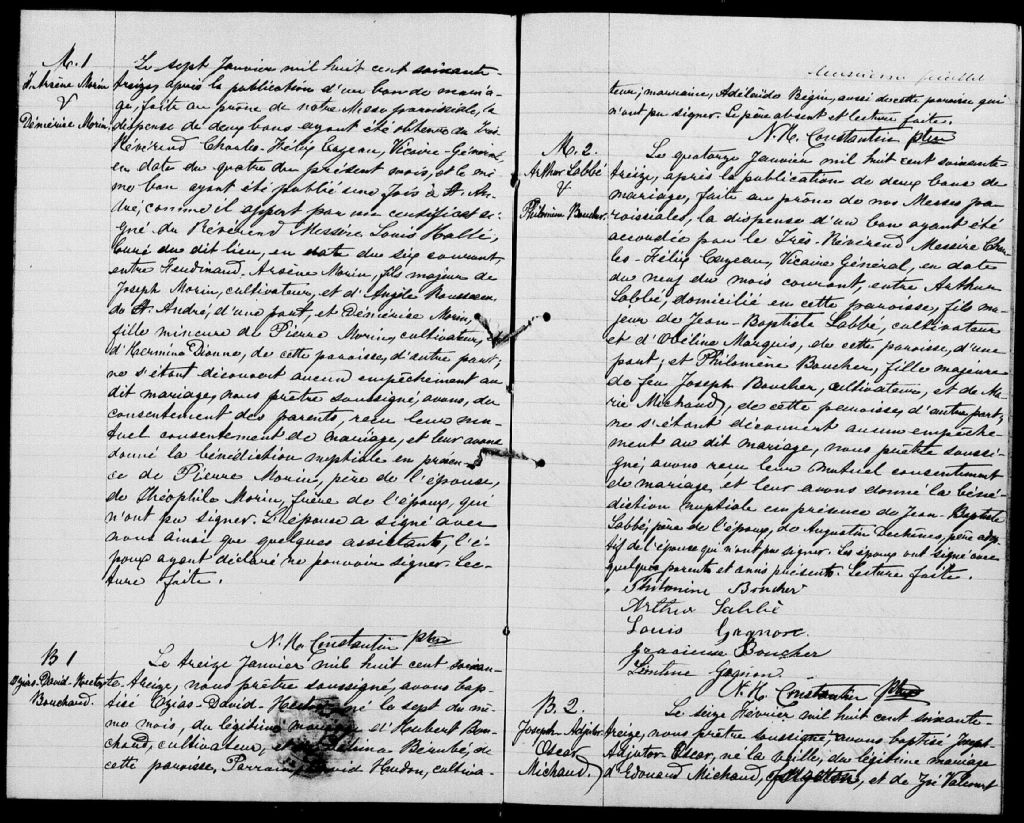 M. 1
F. Arsène Morin
V
Démérise Morin.
Le sept Janvier mil huit cent soixante-
treize, après la publication d'un ban de maria-
ge, faite au prône de notre Messe paroissiale, la
dispense de deux bans ayant été obtenue du Très
Révérend Charles-Félix Cazeau, Vicaire-Général,
en date du quatre du présent mois, et le mê-
me ban ayant été publié une fois à St. An-
dré, comme il appert par un certificat si-
gné du Révérend Messire Louis Hallé,
Curé du dit lieu, en date du six courant,
entre Ferdinand-Arsène Morin, fils majeur de
Joseph Morin, cultivateur, et d'Angèle Rousseau
de St. André, d'une part, et Démérise Morin,
fille mineure de Pierre Morin, cultivateur, et
d'Hermine Dionne, de cette paroisse, d'autre part;
ne s'étant découvert aucun empêchement au
dit mariage, nous prêtre soussigné, avons, du
consentement des parents, reçu leur mu-
tuel consentement de mariage, et leur avons
donné la bénédiction nuptiale en présen-
ce de Pierre Morin, père de l'épouse,
de Théophile Morin, frère de l'époux, qui
n'ont pu signer. L'épouse a signé avec
nous ainsi que quelques assistants, l'é-
poux ayant déclaré ne pouvoir signer. Lec-
ture faite.
N. H. Constantin Ptre
B 1
Ozias-David-Hector
Bouchard.
Le treize Janvier mil huit cent soixan-
te-treize, nous prêtre soussigné, avons bap-
tisé Ozias-David-Hector, né le sept du mê-
me mois, du légitime mariage d'Hubert Bou-
chard, cultivateur, et Bérubé, de
cette paroisse. Parrain, David Heudon, cultiva-
teur; marraine, Adélaïde Bégin, aussi de cette paroisse qui
n'ont pu signer. Le père absent et lecture faite.
N. H. Constantin Ptre
M. 2.
Arthur Labbé
V
Philomène Boucher.
Le quatorze Janvier mil huit cent soixante-
treize, après la publication de deux bans de
mariage, faite au prône de nos Messes pa-
roissiales, la dispense d'un ban ayant été
accordée par le Très-Révérend Messire Char-
les-Félix Cazeau, Vicaire Général, en date
du neuf du mois courant, entre Arthur
Labbé, domicilié en cette paroisse, fils ma-
jeur de Jean-Baptiste Labbé, cultivateur
et d'Obéline Marquis, de cette paroisse, d'une
part; et Philomène Boucher, fille majeure
de feu Joseph Boucher, cultivateur, et de Ma-
rie Michaud, de cette paroisse, d'autre part;
ne s'étant découvert aucun empêche-
ment au dit mariage, nous prêtre soussi-
gné, avons reçu leur mutuel consentement
de mariage et leur avons donné la béné-
diction nuptiale en présence de Jean-Baptiste
Labbé, père de l'époux, de Augustin Deschênes, père adop-
tif de l'épouse qui n'ont pu signer. Les époux ont signé avec
quelques parents et amis présents. Lecture faite.
Philomène Boucher
Arthur Labbé
Louis Gagnon
Gracieuse Boucher
Gagnon
N. H. Constantin Ptre
B. 2.
Joseph Adjutor
Oscar
Michaud
Le seize Février mil huit cent soixante-
treize, nous prêtre soussigné avons baptisé Joseph-
Adjutor-Oscar, né la veille, du légitime mariage
d'Edouard Michaud, et de Zoé Valcourt